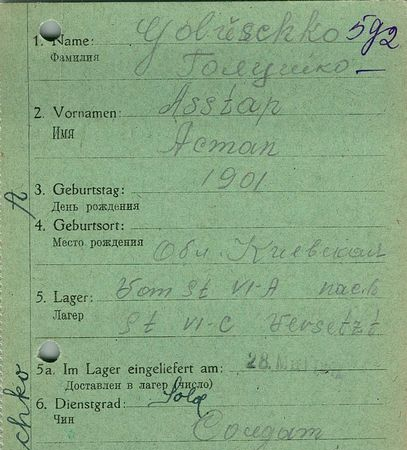 1. Name: Golüschko 592
Фамилия Голушко
2. Vornamen: Asstap
Имя Астап
3. Geburtstag: 1901
День рождения
4. Geburtsort:
Место рождения Обл. Киевская
5. Lager: Vom St VI-A nach
Лагер St VI-C Versetzt
5a. Im Lager eingeliefert am: 28.
Доставлен в лагер (число)
6. Dienstgrad: Sold
Чин Солдат
chko A